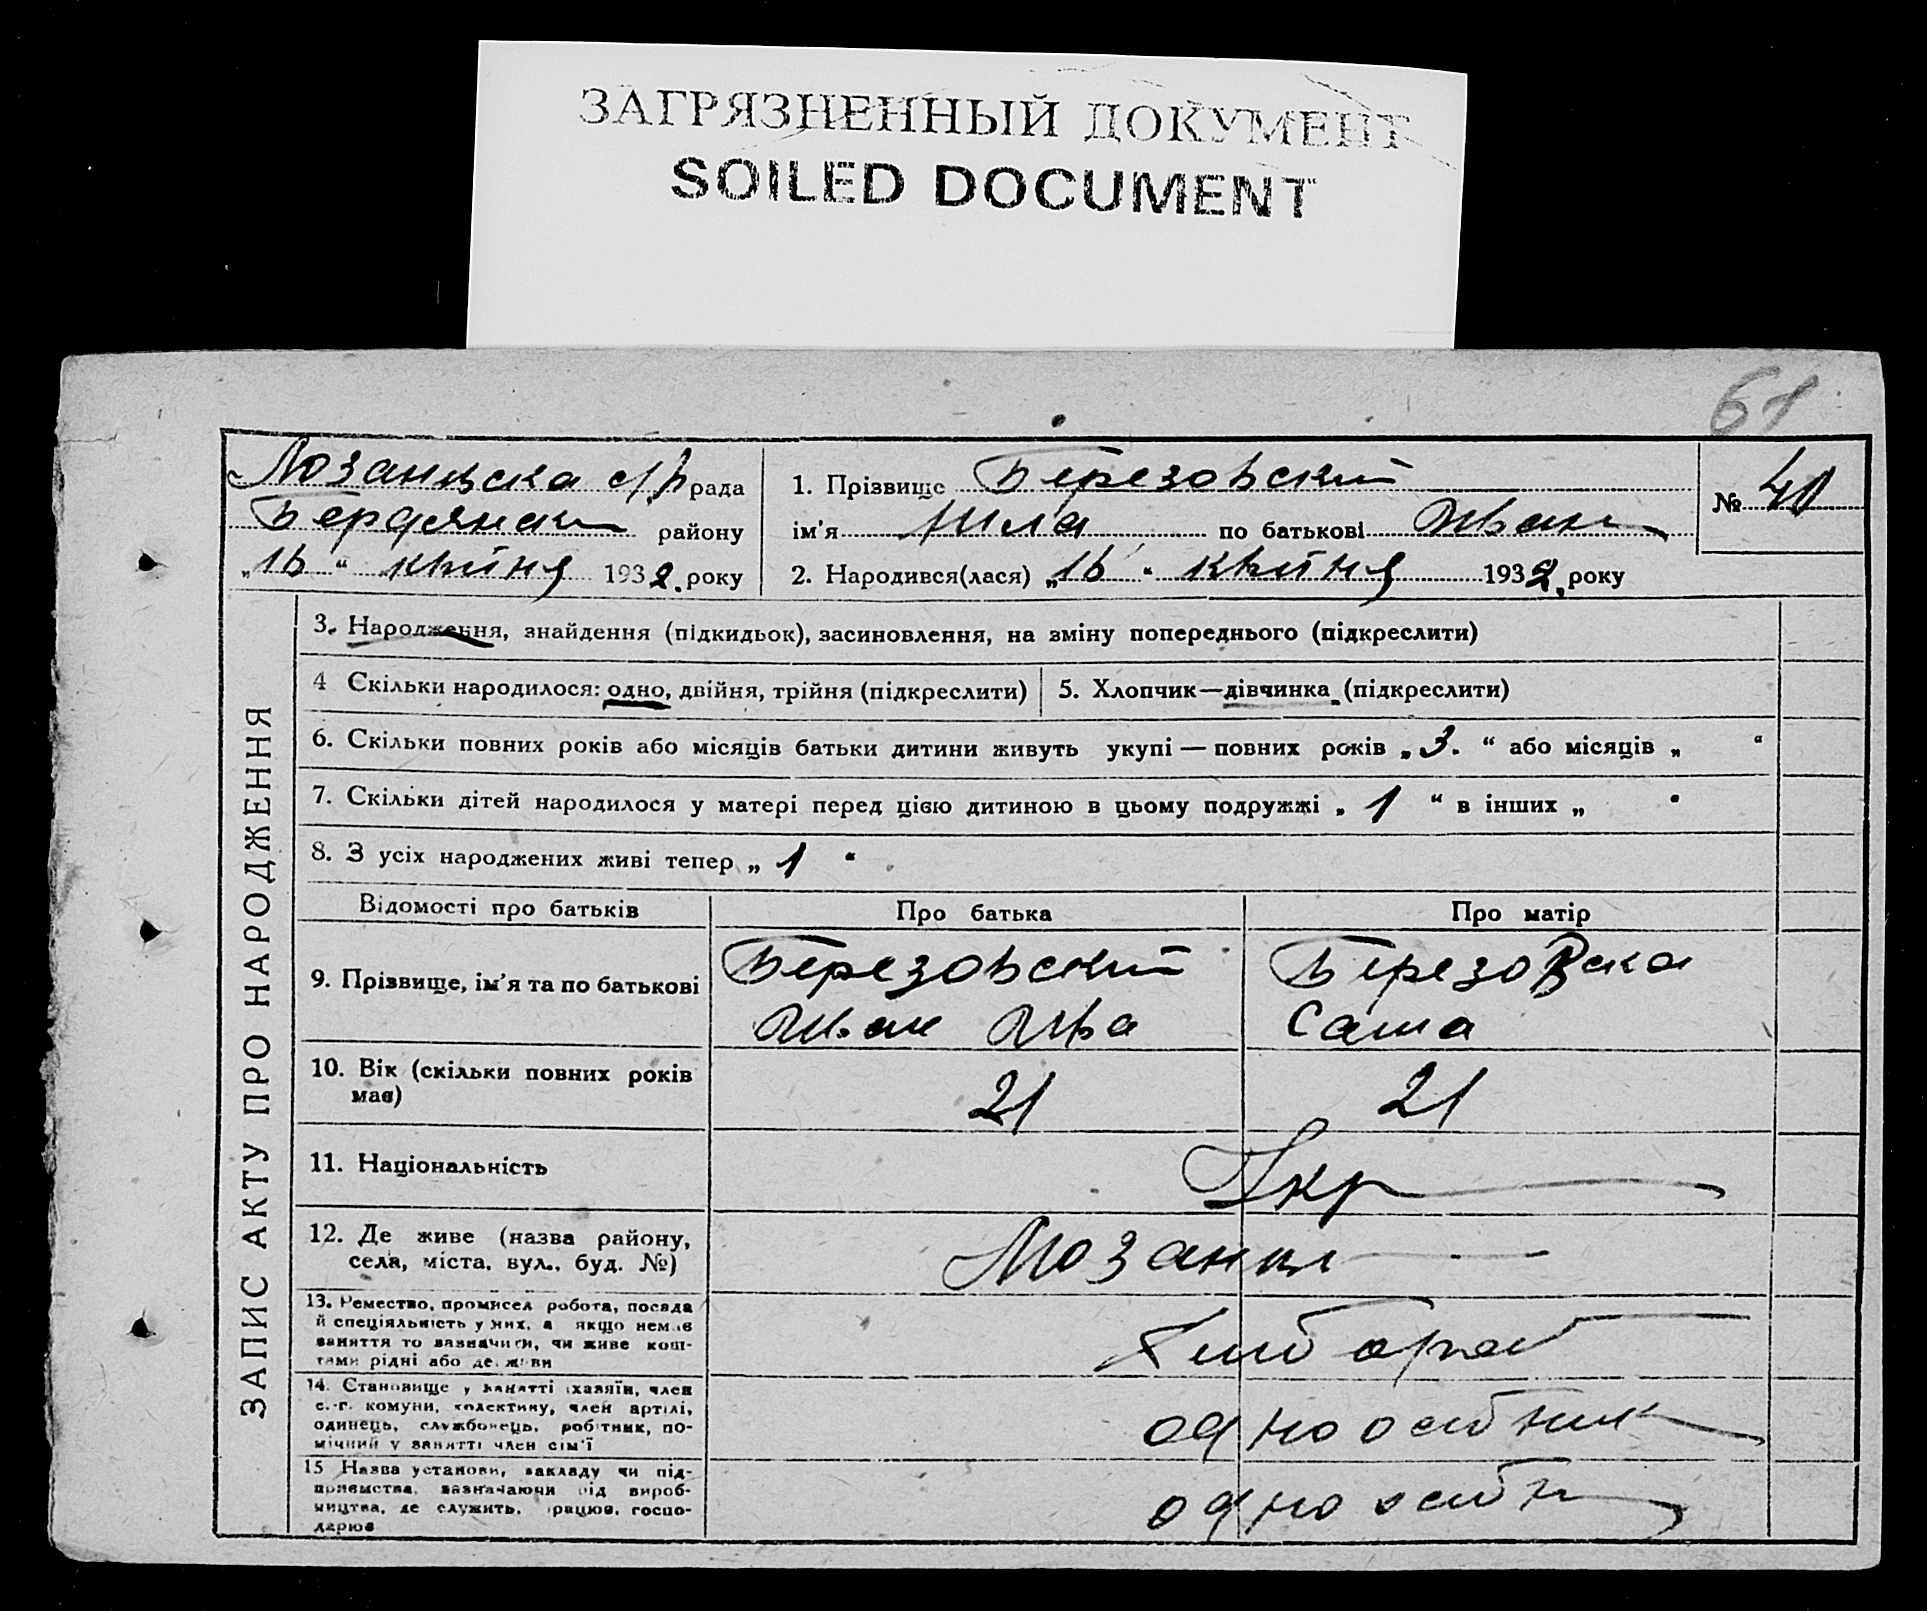 ЗАГРЯЗНЕННЫЙ ДОКУМЕНТ
SOILED DOCUMENT
61
Лозанська с/р рада
Бердянськ району
„16“ квітня 1932. року
1. Прізвище Березовский
ім'я по батькові Иван
2. Народився(лася) „16“ квітня 1932. року
№ 40
ЗАПИС АКТУ ПРО НАРОДЖЕННЯ
3. Народження, знайдення (підкидьок), засиновлення, на зміну попереднього (підкреслити)
4 Скільки народилося: одно, двійня, трійня (підкреслити)
5. Хлопчик—дівчинка (підкреслити)
6. Скільки повних років або місяців батьки дитини живуть укупі — повних років „3.“ або місяців „ “
7. Скільки дітей народилося у матері перед цією дитиною в цьому подружжі „1“ в інших „ “
8. З усіх народжених живі тепер „1“
Відомості про батьків
Про батька
Про матір
9. Прізвище, ім'я та по батькові
Березовский
Иван Ива
Березовска
Саша
10. Вік (скільки повних років
має)
21
21
11. Національність
Укр
12. Де живе (назва району,
села, міста, вул., буд. №)
13. Ремество, промисел робота, посада
й спеціяльність у них, а якщо немає
заняття то зазначити, чи живе кош-
тами рідні або держави
Хлібороб
14. Становище у занятті (хазяїн, член
с.-г. комуни, колективу, член артілі,
одинець, службовець, робітник, по-
мічний у занятті член сім'ї
одноосібник
15 Назва установи, закладу чи під-
приємства, зазначаючи рід вироб-
ництва, де служить, працює, госпо-
дарює
одноосібн